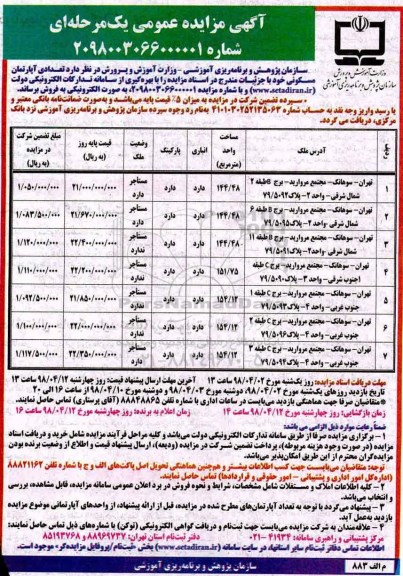 آگهی مزایده عمومی یک‌مرحله‌ای
شماره ۲۰۹۸۰۰۳۰۶۶۰۰۰۰۰۱
سازمان پژوهش و برنامه‌ریزی آموزشی - وزارت آموزش و پرورش در نظر دارد تعدادی آپارتمان
مسکونی خود با جزئیات مندرج در اسناد مزایده را با بهره‌گیری از سامانه تدارکات الکترونیکی دولت
(www.setadiran.ir) و با شماره مزایده ۲۰۹۸۰۰۳۰۶۶۰۰۰۰۰۱، به صورت الکترونیکی به فروش برساند.
سپرده تضمین شرکت در مزایده به میزان ۵٪ قیمت پایه می‌باشد و به‌صورت ضمانت‌نامه بانکی معتبر و
یا رسید واریز وجه نقد به حساب شماره
به‌نام رد وجوه سپرده سازمان پژوهش و برنامه‌ریزی آموزشی نزد بانک
مرکزی، دریافت می گردد.
ردیف آدرس ملک مساحت واحد (مترمربع) انباری پارکینگ وضعیت ملک قیمت پایه روز (به ریال) مبلغ تضمین شرکت در مزایده (به ریال)
۱ تهران- سوهانک- مجتمع مروارید- برج B طبقه ۲ شمال شرقی- واحد ۲- پلاک ۷۹/۵۰۹۲ ۱۴۴/۴۸ دارد دارد مستاجر ندارد ۲۱/۰۰۰/۰۰۰/۰۰۰ ۱/۰۵۰/۰۰۰/۰۰۰
۲ تهران- سوهانک- مجتمع مروارید- برج B طبقه ۶ شمال شرقی- واحد ۲- پلاک ۷۹/۵۰۹۵ ۱۴۴/۴۸ دارد دارد مستاجر ندارد ۲۱/۶۷۰/۰۰۰/۰۰۰ ۱/۰۸۳/۵۰۰/۰۰۰
۳ تهران- سوهانک- مجتمع مروارید- برج B طبقه ۱۱ شمال شرقی- واحد ۲- پلاک ۷۹/۵۰۹۱ ۱۴۴/۴۸ دارد دارد مستاجر ندارد ۲۲/۴۰۰/۰۰۰/۰۰۰ ۱/۱۲۰/۰۰۰/۰۰۰
۴ تهران- سوهانک- مجتمع مروارید- برج C طبقه ۱ جنوب شرقی- واحد ۳- پلاک ۷۹/۵۰۹۰ ۱۵۱/۷۵ دارد دارد مستاجر ندارد ۲۲/۲۰۰/۰۰۰/۰۰۰ ۱/۱۱۰/۰۰۰/۰۰۰
۵ تهران- سوهانک- مجتمع مروارید- برج C طبقه ۱ جنوب غربی- واحد ۴- پلاک ۷۹/۵۰۹۳ ۱۵۴/۱۲ دارد دارد مستاجر ندارد ۲۱/۸۵۰/۰۰۰/۰۰۰ ۱/۰۹۲/۵۰۰/۰۰۰
۶ تهران- سوهانک- مجتمع مروارید- برج C طبقه ۲ جنوب غربی- واحد ۴- پلاک ۷۹/۵۰۹۶ ۱۵۴/۱۲ دارد دارد مستاجر ندارد ۲۲/۰۰۰/۰۰۰/۰۰۰ ۱/۱۰۰/۰۰۰/۰۰۰
۷ تهران- سوهانک- مجتمع مروارید- برج C طبقه ۳ جنوب غربی- واحد ۴- پلاک ۷۹/۵۰۹۴ ۱۵۴/۱۲ دارد دارد مستاجر ندارد ۲۲/۳۵۰/۰۰۰/۰۰۰ ۱/۱۱۷/۵۰۰/۰۰۰
مهلت دریافت اسناد مزایده: روز یک‌شنبه مورخ ۹۸/۰۴/۰۲ ساعت ۱۳ آخرین مهلت ارسال پیشنهاد قیمت: روز چهارشنبه ۹۸/۰۴/۱۲ ساعت ۱۳
تاریخ بازدید: روزهای یک‌شنبه مورخ ۹۸/۰۴/۰۲، دوشنبه مورخ ۹۸/۰۴/۰۳ و دوشنبه مورخ ۹۸/۰۴/۱۰ از ساعت ۱۶ الی ۲۰
متقاضیان صرفا جهت هماهنگی بازدید می‌بایست در ساعات اداری با شماره تلفن ۸۸۸۴۸۸۶۵ (آقای پرستاری) تماس حاصل نمایند.
زمان بازگشایی: روز چهارشنبه مورخ ۹۸/۰۴/۱۲ ساعت ۱۴ زمان اعلام به برنده: روز چهارشنبه مورخ ۹۸/۰۴/۱۲ ساعت ۱۶
ضمناً رعایت موارد ذیل الزامی می باشد:
۱ - برگزاری مزایده صرفا از طریق سامانه تدارکات الکترونیکی دولت می‌باشد و کلیه مراحل فرآیند مزایده شامل خرید و دریافت اسناد
مزایده (در صورت وجود هزینه مربوطه)، پرداخت تضمین شرکت در مزایده (ودیعه)، ارسال پیشنهاد قیمت و اطلاع از وضعیت برنده بودن
مزایده‌گران محترم از این طریق امکان‌پذیر می‌باشد.
توجه: متقاضیان می‌بایست جهت کسب اطلاعات بیشتر و همچنین هماهنگی تحویل اصل پاکت‌های الف و ج با شماره تلفن ۸۸۸۲۱۱۶۲
(اداره‌کل امور اداری و پشتیبانی - امور حقوقی و قراردادها) تماس حاصل نمایند.
۲ - کلیه اطلاعات املاک و مستغلات شامل مشخصات، شرایط و نحوه فروش در برد اعلان عمومی سامانه مزایده، قابل مشاهده، بررسی
و انتخاب می‌باشد.
۳ - پیشنهاد می‌گردد با توجه به تعداد آپارتمان‌های مطرح شده در مزایده، قبل از ارائه پیشنهاد، از واحدهای آپارتمانی موضوع مزایده
بازدید به‌عمل آید.
۴ - علاقه‌مندان به شرکت در مزایده می‌بایست جهت ثبت‌نام و دریافت گواهی الکترونیکی (توکن) با شماره‌های ذیل تماس حاصل نمایند:
مرکز پشتیبانی و راهبری سامانه: ۴۱۹۳۴-۰۲۱ دفتر ثبت‌نام استان تهران: ۸۸۹۶۹۷۳۷ و ۸۵۱۹۳۷۶۸
اطلاعات تماس دفاتر ثبت‌نام سایر استان‌ها، در سایت سامانه (www.setadiran.ir) بخش «ثبت‌نام/پروفایل مزایده‌گر» موجود است.
سازمان پژوهش و برنامه‌ریزی آموزشی
م الف ۸۸۳